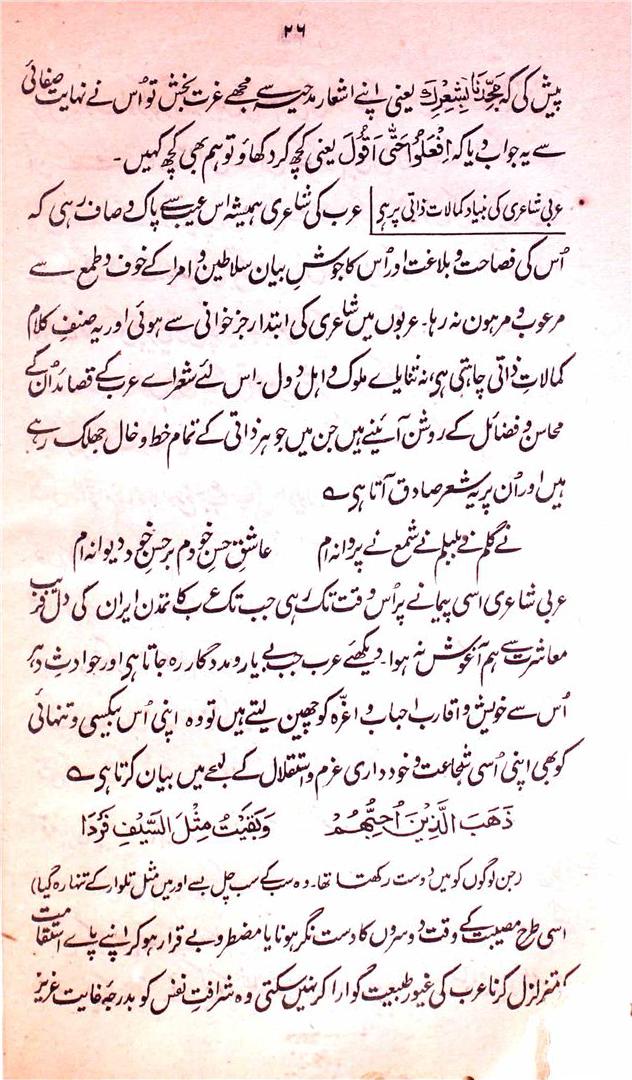 ۲۶
پیش کی کہ مَجِّدْنَا بِشِعْرِكَ یعنی اپنے اشعار مدحیہ سے مجھے عزت بخش تو اُس نے نہایت صفائی
سے یہ جواب دیا کہ اِفْعَلُوْا حَتّٰی اَقُوْلَ یعنی کچھ کر دکھاؤ تو ہم بھی کچھ کہیں۔
عربی شاعری کی بنیاد کمالات ذاتی پر ہی عرب کی شاعری ہمیشہ اس عیب سے پاک و صاف رہی کہ
اُس کی فصاحت و بلاغت اور اُس کا جوشِ بیان سلاطین و امرا کے خوف و طمع سے
مرعوب و مرہون نہ رہا۔ عربوں میں شاعری کی ابتدا رجز خوانی سے ہوئی اور یہ صنفِ کلام
کمالاتِ ذاتی چاہتی ہی، نہ ثنایاے ملوک و اہل دول۔ اس لئے شعراے عرب کے قصائد اُن کے
محاسن و فضائل کے روشن آئینے ہیں جن میں جوہر ذاتی کے تمام خط و خال جھلک رہے
ہیں اور اُن پر یہ شعر صادق آتا ہی ؎
نے گلم نے بلبلم نے شمع نے پروانہ ام عاشق حسنِ خودم بر حسنِ خود دیوانہ ام
عربی شاعری اسی پیمانے پر اُس وقت تک رہی جب تک عرب کا تمدن ایران کی دل فریب
معاشرت سے ہم آغوش نہ ہوا۔ دیکھئے عرب جب بے یار و مددگار رہ جاتا ہی اور حوادثِ دہر
اُس سے خویش و اقارب احباب و اعزّہ کو چھین لیتے ہیں تو وہ اپنی اُس بیکسی و تنہائی
کو بھی اپنی اُسی شجاعت و خودداری عزم و استقلال کے لہجے میں بیان کرتا ہی ؎
ذَهَبَ الَّذِيْنَ اُحِبُّهُمْ وَبَقِيْتُ مِثْلَ السَّيْفِ فَرْدَا
(جن لوگوں کو میں دوست رکھتا تھا۔ وہ سب کے سب چل بسے اور میں مثل تلوار کے تنہا رہ گیا)
اسی طرح مصیبت کے وقت دوسروں کا دست نگر ہونا یا مضطر و بے قرار ہو کر اپنے پاے استقامت
کو متزلزل کرنا عرب کی غیور طبیعت گوارا کر نہیں سکتی وہ شرافتِ نفس کو بدرجۂ غایت عزیز